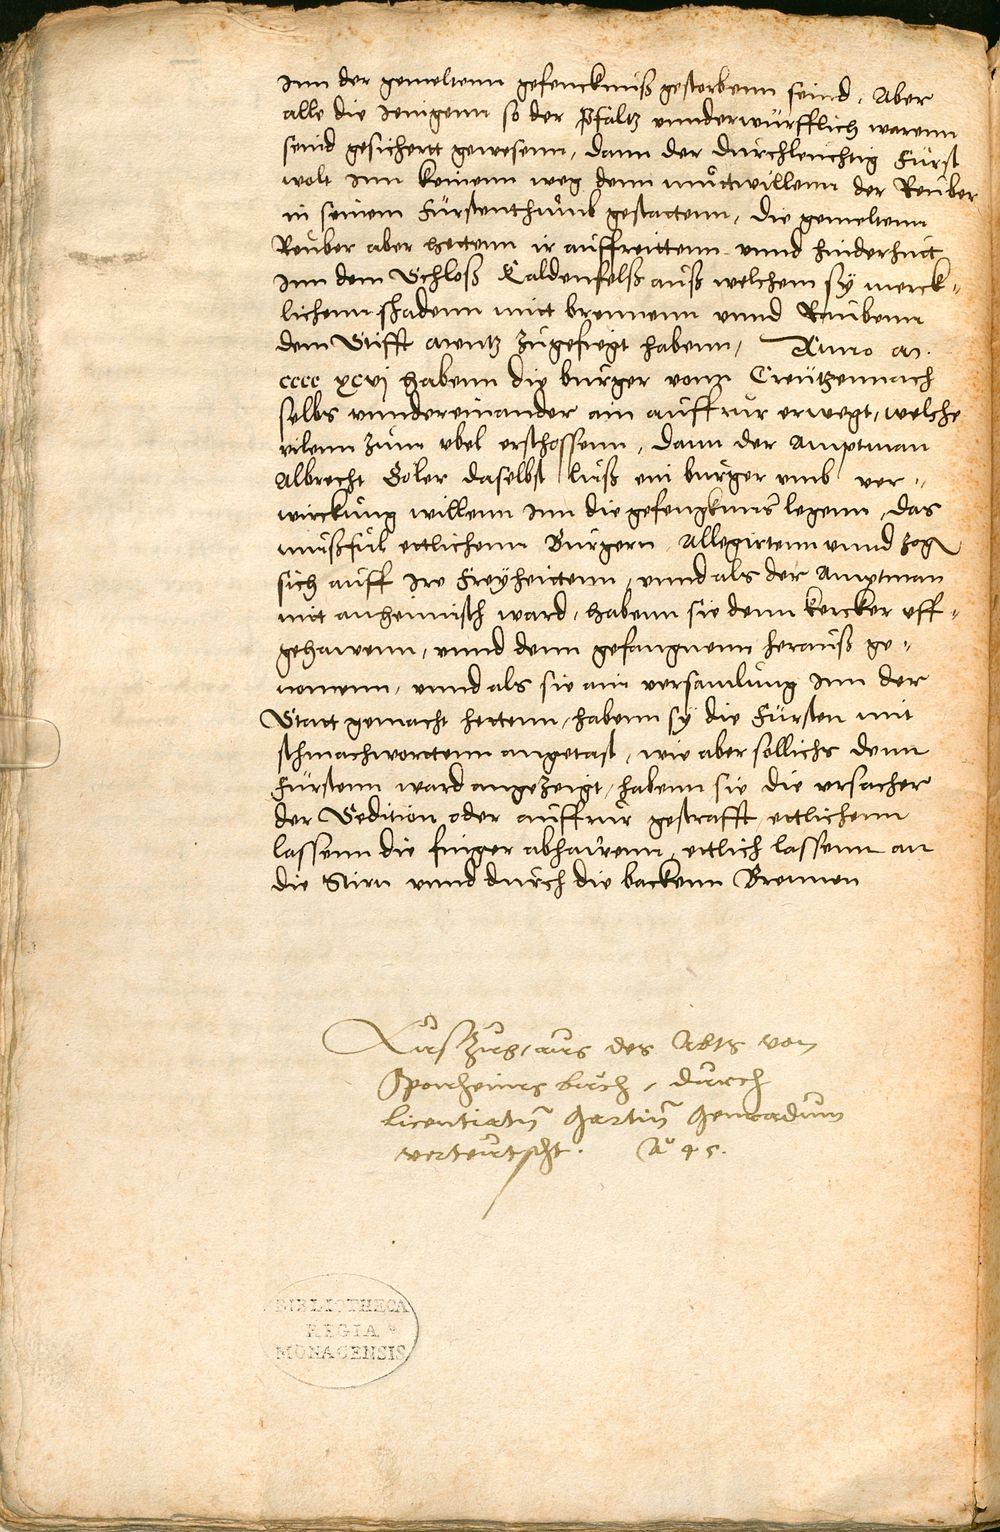 Inn der gemeltenn gefencknuß gestorbenn seind, Aber
alle die Jenigenn so der Pfaltz vnnderwürfflich warenn
seind gesichertt gewesenn, dann der durchleuchtig Fürst
wolt Inn keinenn weg denn mutwillenn der Reuber
in seinem Fürstenthumb gestattenn, die gemeltenn
Reuber aber hettenn ir auffreittenn vnnd hinderhutt
Inn dem Schloß Caldenfelß auß welchem sy merck-
lichenn schadenn mitt brennenn vnnd Raubenn
dem Stifft mentz zugefiegt habenn, Anno m.
cccc xcvj habenn die burger vonn Creützennach
selbs vnndereinander ain auffrur erwegt, welche
vilenn zum vbel erschossenn, dann der Amptman
Albrecht Goler daselbst ließ ein burger vmb ver-
wirckung willenn Inn die gefengknus legenn, das
mißfiel ettlichenn Burgern, Allegirtenn vnnd zog
sich auff Ire Freyheittenn, vnnd als der Amptman
nit anheimisch ward, habenn sie denn kercker uff-
gehawenn, vnnd denn gefangnenn herauß ge-
nomenn, vnnd als sie ain versamlung Inn der
Statt gemacht hettenn, habenn sy die Fürsten mit
schmachworttenn angetast, wie aber sollichs denn
Fürstenn ward angezeigt, habenn sie die vrsacher
der Sedition oder auffrur gestrafft ettlichenn
lassenn die finger abhawenn, ettlich lassenn an
die Stirn vnnd durch die backenn Brennen
Auszug, aus des Abts von
Sponheims buch, durch
licentiatum Martinum
verteutscht. Ao 45.
BIBLIOTHECA
REGIA
MONACENSIS